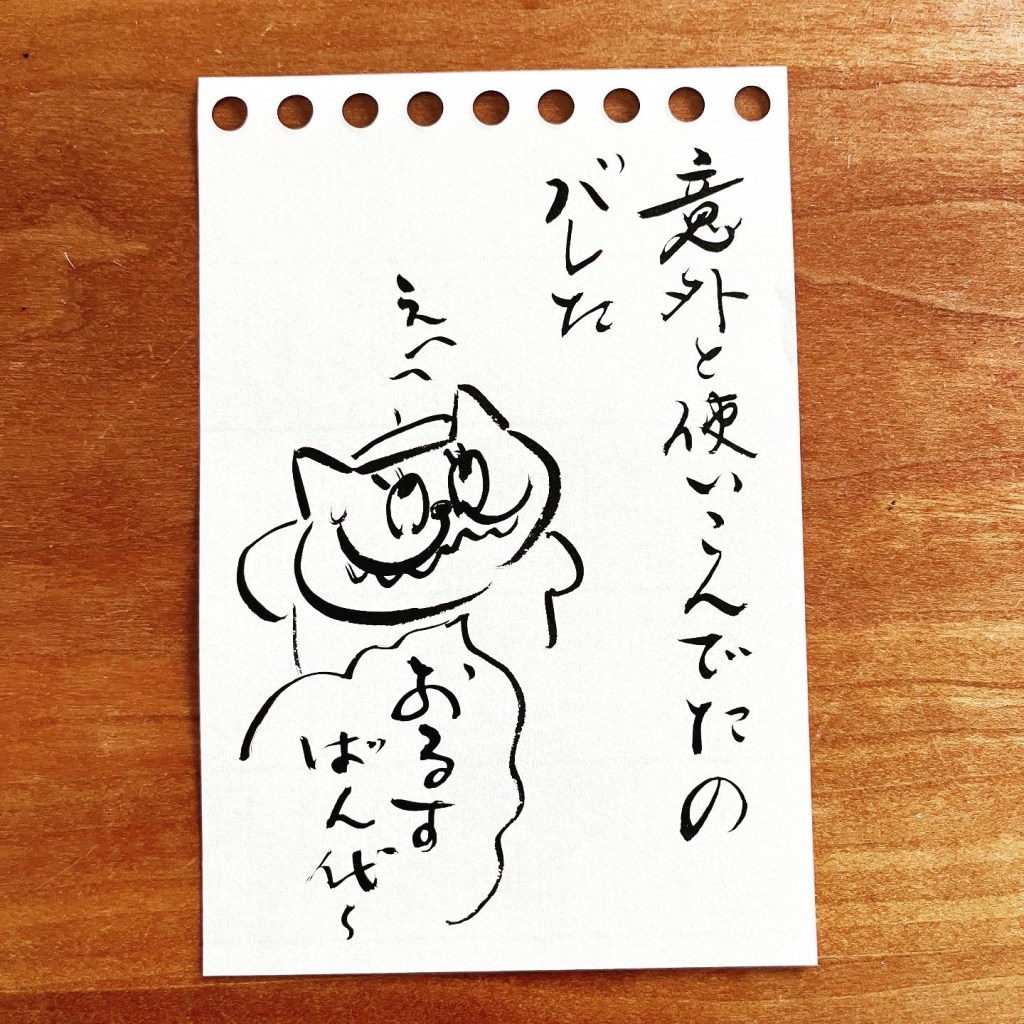 意外と使いこんでたの
バレた
えへへ
おるす
ばん代〜